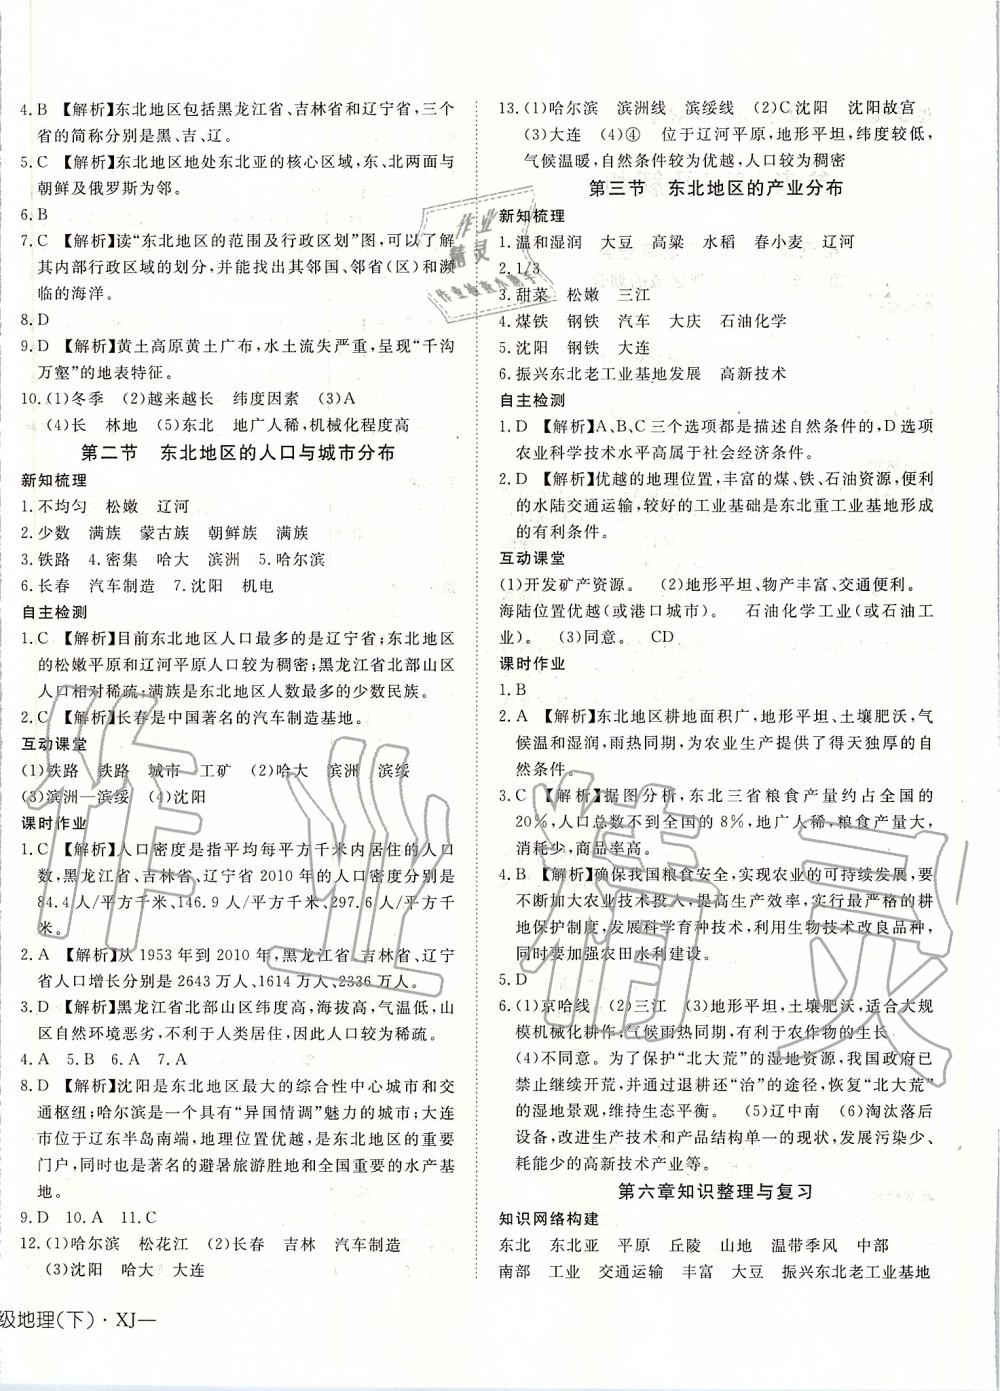 4. B 【解析】东北地区包括黑龙江省、吉林省和辽宁省,三个
省的简称分别是黑、吉、辽。
5. C 【解析】东北地区地处东北亚的核心区域,东、北两面与
朝鲜及俄罗斯为邻。
6. B
7. C 【解析】读“东北地区的范围及行政区划”图,可以了解
其内部行政区域的划分,并能找出其邻国、邻省(区)和濒
临的海洋。
8. D
9. D 【解析】黄土高原黄土广布,水土流失严重,呈现“千沟
万壑”的地表特征。
10. (1)冬季 (2)越来越长 纬度因素 (3)A
(4)长 林地 (5)东北 地广人稀,机械化程度高
第二节 东北地区的人口与城市分布
新知梳理
1. 不均匀 松嫩 辽河
2. 少数 满族 蒙古族 朝鲜族 满族
3. 铁路 4. 密集 哈大 滨洲 5. 哈尔滨
6. 长春 汽车制造 7. 沈阳 机电
自主检测
1. C 【解析】目前东北地区人口最多的是辽宁省;东北地区
的松嫩平原和辽河平原人口较为稠密;黑龙江省北部山区
人口相对稀疏;满族是东北地区人数最多的少数民族。
2. C 【解析】长春是中国著名的汽车制造基地。
互动课堂
(1)铁路 铁路 城市 工矿 (2)哈大 滨洲 滨绥
(3)滨洲—滨绥 (4)沈阳
课时作业
1. C 【解析】人口密度是指平均每平方千米内居住的人口
数,黑龙江省、吉林省、辽宁省 2010 年的人口密度分别是
84.4 人/平方千米、146.9 人/平方千米、297.6 人/平方千
米。
2. A 【解析】从 1953 年到 2010 年,黑龙江省、吉林省、辽宁
省人口增长分别是 2643 万人、1614 万人、2336 万人。
3. D 【解析】黑龙江省北部山区纬度高,海拔高,气温低,山
区自然环境恶劣,不利于人类居住,因此人口较为稀疏。
4. A 5. B 6. A 7. A
8. D 【解析】沈阳是东北地区最大的综合性中心城市和交
通枢纽;哈尔滨是一个具有“异国情调”魅力的城市;大连
市位于辽东半岛南端,地理位置优越,是东北地区的重要
门户,同时也是著名的避暑旅游胜地和全国重要的水产基
地。
9. D 10. A 11. C
12. (1)哈尔滨 松花江 (2)长春 吉林 汽车制造
(3)沈阳 哈大 大连
级地理(下)·XJ—
13. (1)哈尔滨 滨洲线 滨绥线 (2)C 沈阳 沈阳故宫
(3)大连 (4)④ 位于辽河平原,地形平坦,纬度较低,
气候温暖,自然条件较为优越,人口较为稠密
第三节 东北地区的产业分布
新知梳理
1. 温和湿润 大豆 高粱 水稻 春小麦 辽河
2. 1/3
3. 甜菜 松嫩 三江
4. 煤铁 钢铁 汽车 大庆 石油化学
5. 沈阳 钢铁 大连
6. 振兴东北老工业基地发展 高新技术
自主检测
1. D 【解析】A、B、C 三个选项都是描述自然条件的,D 选项
农业科学技术水平高属于社会经济条件。
2. D 【解析】优越的地理位置,丰富的煤、铁、石油资源,便利
的水陆交通运输,较好的工业基础是东北重工业基地形成
的有利条件。
互动课堂
(1)开发矿产资源。 (2)地形平坦、物产丰富、交通便利。
海陆位置优越(或港口城市)。 石油化学工业(或石油工
业)。 (3)同意。 CD
课时作业
1. B
2. A 【解析】东北地区耕地面积广,地形平坦、土壤肥沃,气
候温和湿润,雨热同期,为农业生产提供了得天独厚的自
然条件。
3. C 【解析】据图分析,东北三省粮食产量约占全国的
20%,人口总数不到全国的 8%,地广人稀,粮食产量大,
消耗少,商品率高。
4. B 【解析】确保我国粮食安全,实现农业的可持续发展,要
不断加大农业技术投入,提高生产效率,实行最严格的耕
地保护制度,发展科学育种技术,利用生物技术改良品种,
同时要加强农田水利建设。
5. D
6. (1)京哈线 (2)三江 (3)地形平坦,土壤肥沃,适合大规
模机械化耕作,气候雨热同期,有利于农作物的生长
(4)不同意。为了保护“北大荒”的湿地资源,我国政府已
禁止继续开荒,并通过退耕还“治”的途径,恢复“北大荒”
的湿地景观,维持生态平衡。 (5)辽中南 (6)淘汰落后
设备,改进生产技术和产品结构单一的现状,发展污染少、
耗能少的高新技术产业等。
第六章知识整理与复习
知识网络构建
东北 东北亚 平原 丘陵 山地 温带季风 中部
南部 工业 交通运输 丰富 大豆 振兴东北老工业基地
作业精灵
作业
精灵
作业检查小助手